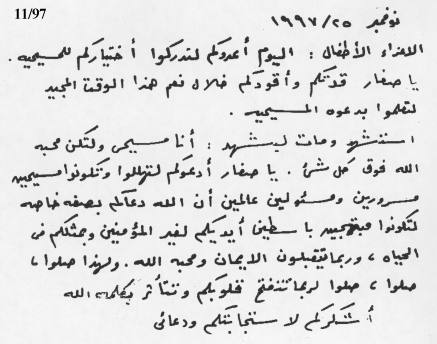 11/97
نوفمبر ٢٥/١٩٩٧
الاعزاء الأطفال : اليوم أدعوكم لتدركوا أختياركم للمسيحيه .
يا صغار قدتكم وأقودكم خلال نعم هذا الوقت المجيد
لتعلموا بدعوه المسيحيه .
استشهد ومات ليشهد : أنا مسيحى ولتكن محبه
الله فوق كل شئ . يا صغار أدعوكم لتهللوا وتكونوا مسيحيين
مسرورين ومسئولين عالمين أن الله دعاكم بصفه خاصه
لتكونوا مبتهجين باسطين أيديكم لغير المؤمنين وبمثلكم فى
الحياه ، وربما يقبلون الايمان ومحبه الله . ولهذا صلوا ،
صلوا ، صلوا لربما تنفتح قلوبكم وتتأثر بكلمه الله
أشكركم لاستجابتكم ودعائى